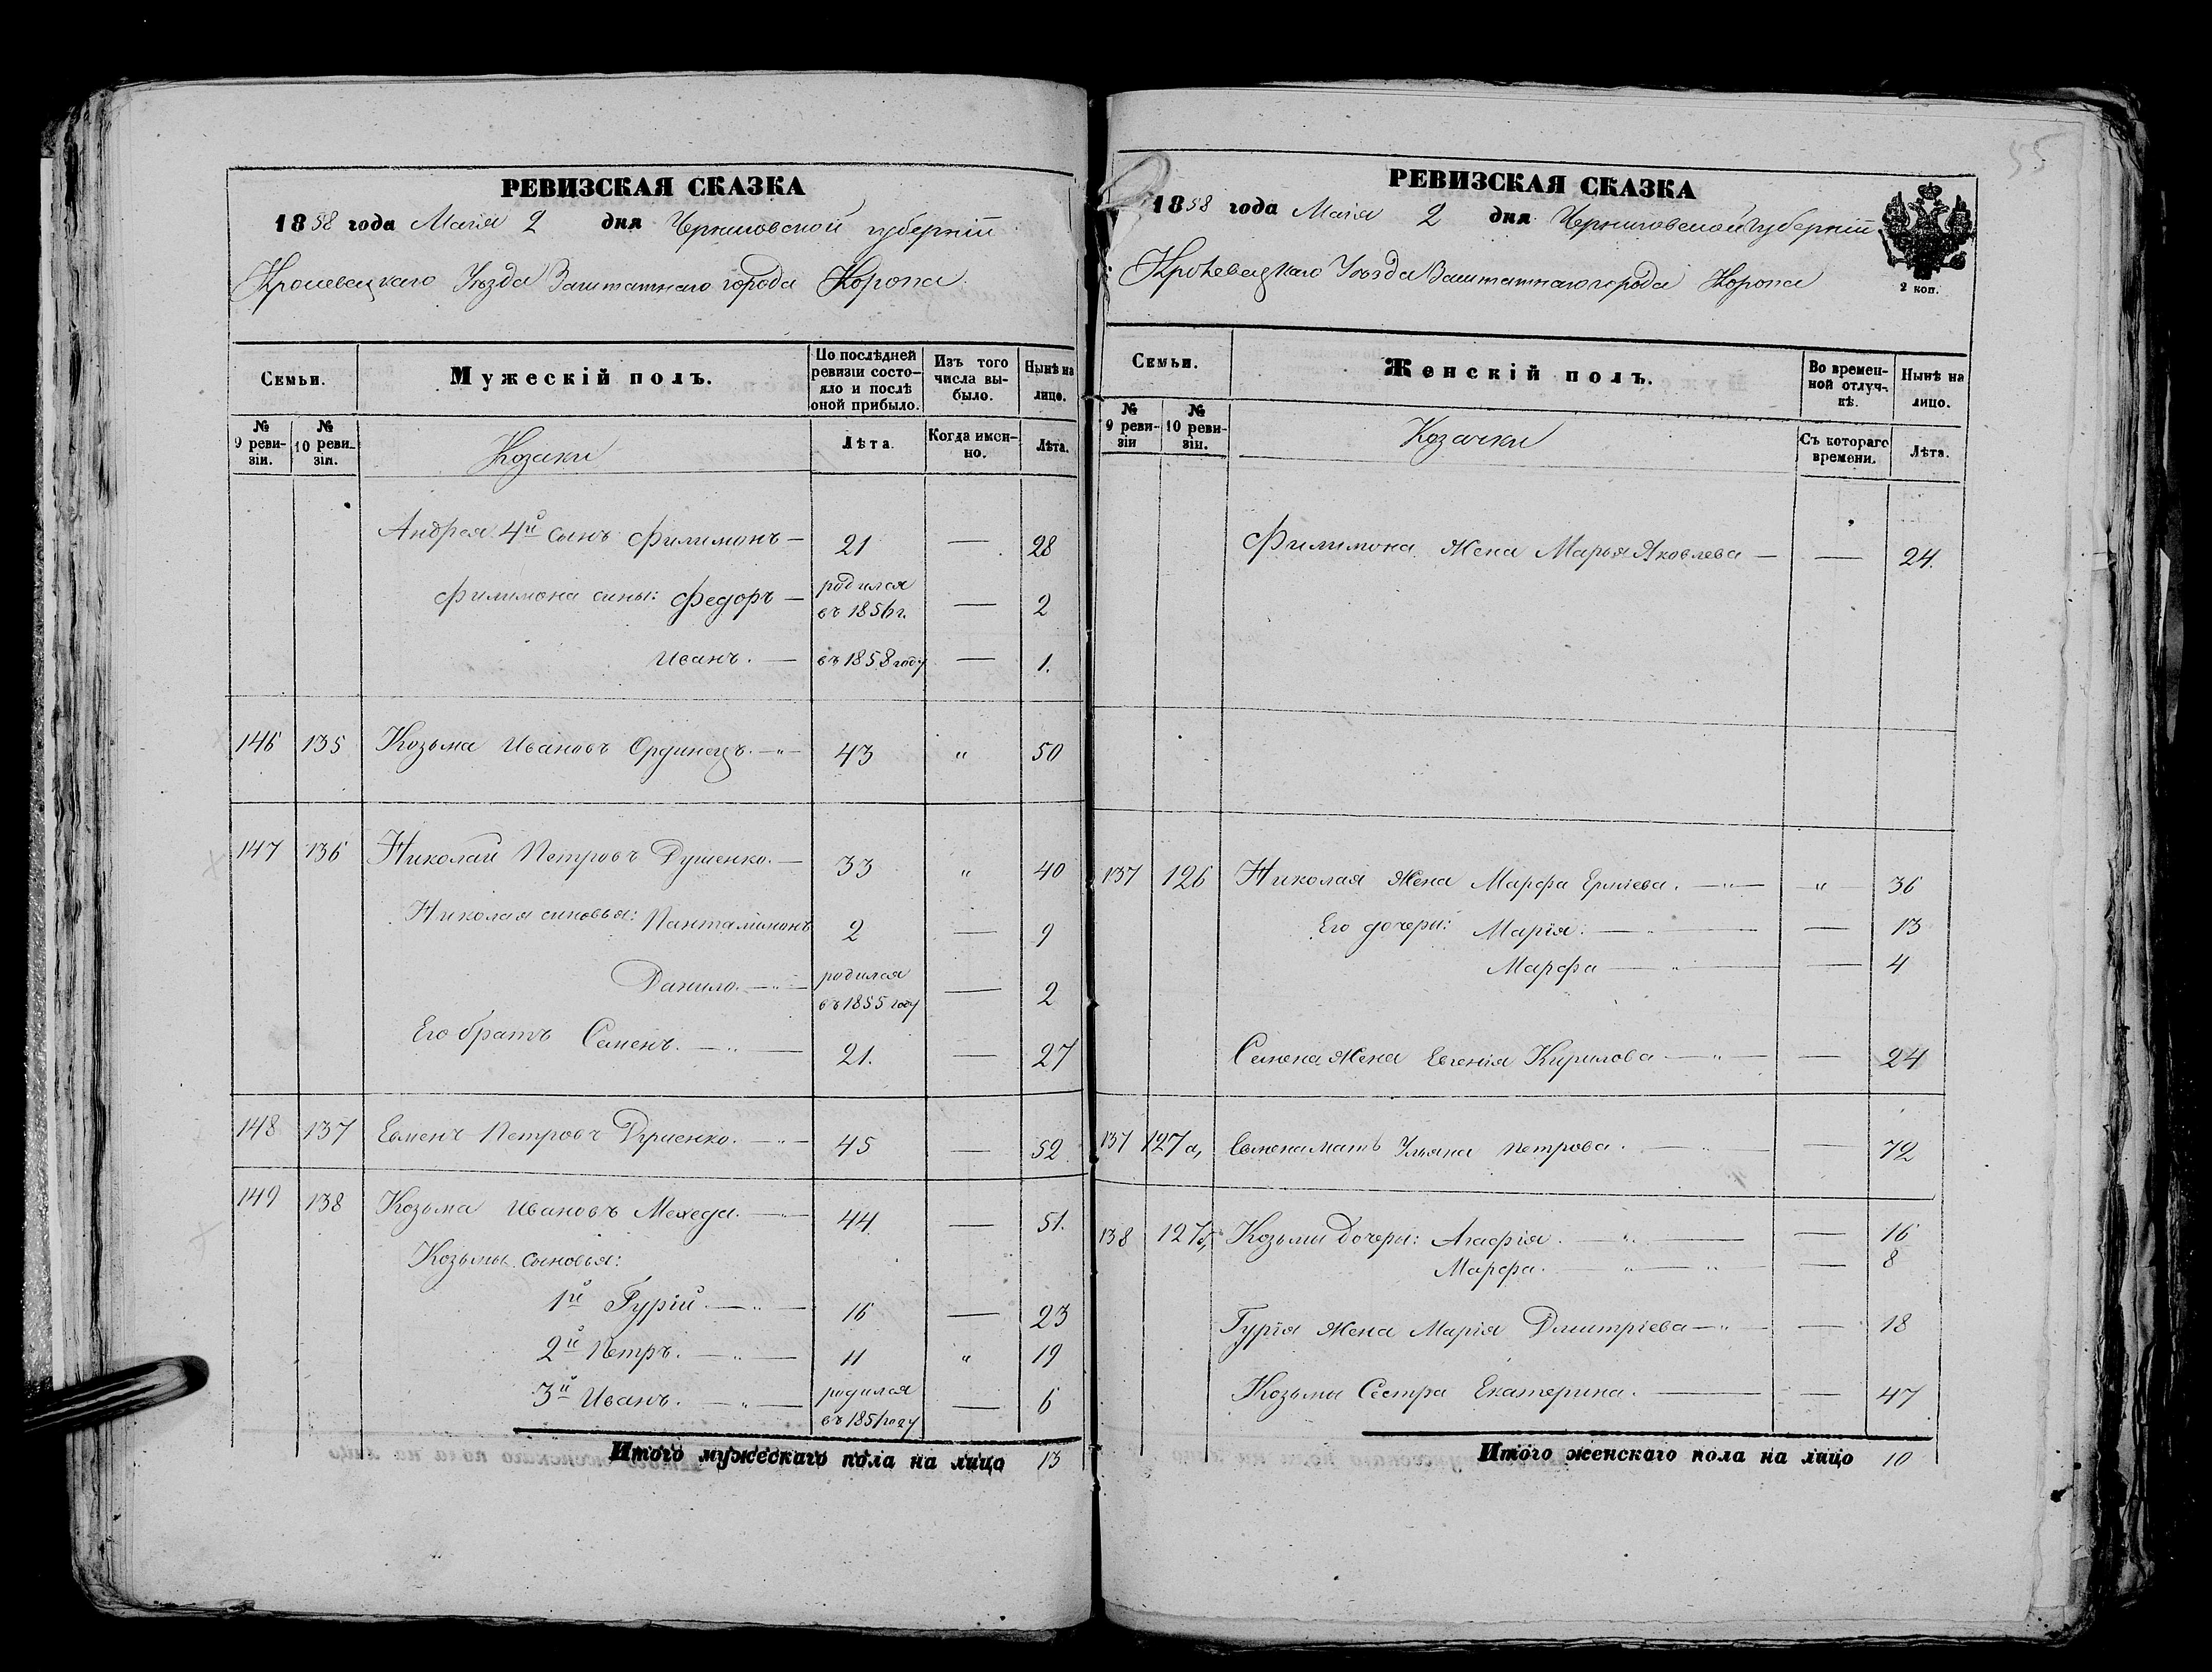 РЕВИЗСКАЯ СКАЗКА
1858 года Маія 2 дня Черниговской губерніи
Кролевецкаго Уезда Заштатнаго города Коропа
Семьи.
Мужескій полъ.
По послѣдней ревизіи состояло и послѣ оной прибыло.
Изъ того числа выбыло.
Нынѣ на лицо.
№ 9 ревизіи.
№ 10 ревизіи.
Козаки
Лѣта.
Когда именно.
Лѣта.
Андрея 4й сынъ Филимонъ — 21 — 28
Филимона сины: Федоръ — родился въ 1856 г. — 2
Иванъ. — въ 1858 году — 1.
146 135 Козьма Ивановъ Ординецъ. —"— 43 " 50
147 136 Николай Петровъ Душенко. — 33 " 40
Николая сыновья: Панталимонъ 2 — 9
Данило. —"— родился въ 1855 году — 2
Его братъ Семенъ. —"— 21. — 27
148 137 Евменъ Петровъ Душенко. —"— 45 — 52
149 138 Козьма Ивановъ Мехеда. —"— 44 — 51.
Козьмы сыновья:
1й Гурій —"— 16 — 23
2й Петръ. —"— 11 " 19
3й Иванъ. —"— родился въ 1851 году — 6
Итого мужескаго пола на лицо 13
55
РЕВИЗСКАЯ СКАЗКА
1858 года Маія 2 дня Черниговской Губерніи
Кролевецкаго Уезда Заштатнаго города Коропа
2 коп.
Семьи.
Женскій полъ.
Во временной отлучкѣ.
Нынѣ на лицо.
№ 9 ревизіи
№ 10 ревизіи.
Козачки
Съ котораго времени.
Лѣта.
Филимона Жена Марья Яковлева — — 24.
137 126 Николая Жена Марфа Ермієва. —"— " 36
Его дочери: Марія. — — 13
Марфа —"— — 4
Семена Жена Евгенія Кирилова —"— — 24
137 127а, Евмена мать Ульяна Петрова. —"— — 72
138 127б, Козьмы Дочеры: Агафія. —"— — 16
Марфа. —"—"— — 8
Гурія Жена Марія Дмитріева —"— — 18
Козьмы Сестра Екатерина. — — 47
Итого женскаго пола на лицо 10